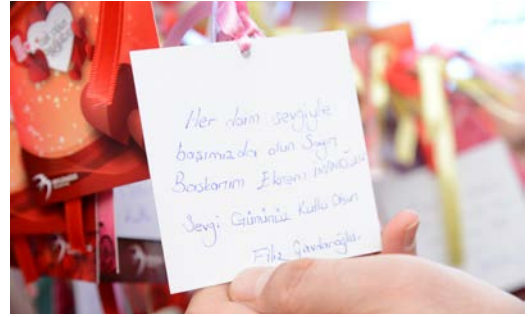 Her daim sevgiyle
başımızda olun Sayın
Başkanım Ekrem İMAMOĞLU
Sevgi Gününüz Kutlu Olsun
Filiz